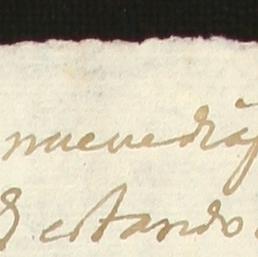 nueve dias
estando